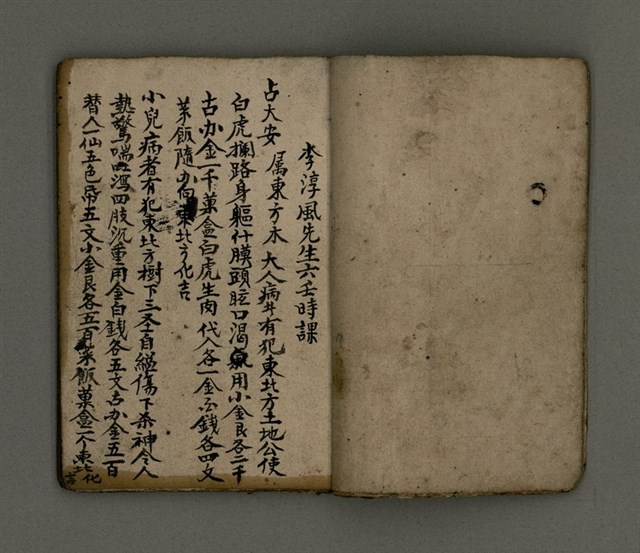 李淳風先生六壬時課
占大安 属東方木 大人病井有犯東北方土地公使
白虎攔路身軀什膜頭眩口渴氣用小金艮各二千
古办金一千菓盒白虎生肉 代人各一金白錢各四文
菜飯隨办向東北方化吉
小兒病者有犯東北方樹下三圣自縊傷下煞神令人
熱驚喘吐瀉四肢沉重用金白錢各五文古办金五百
替人一仙五色帋五文小金艮各五百菜飯菓盒一个東北方化